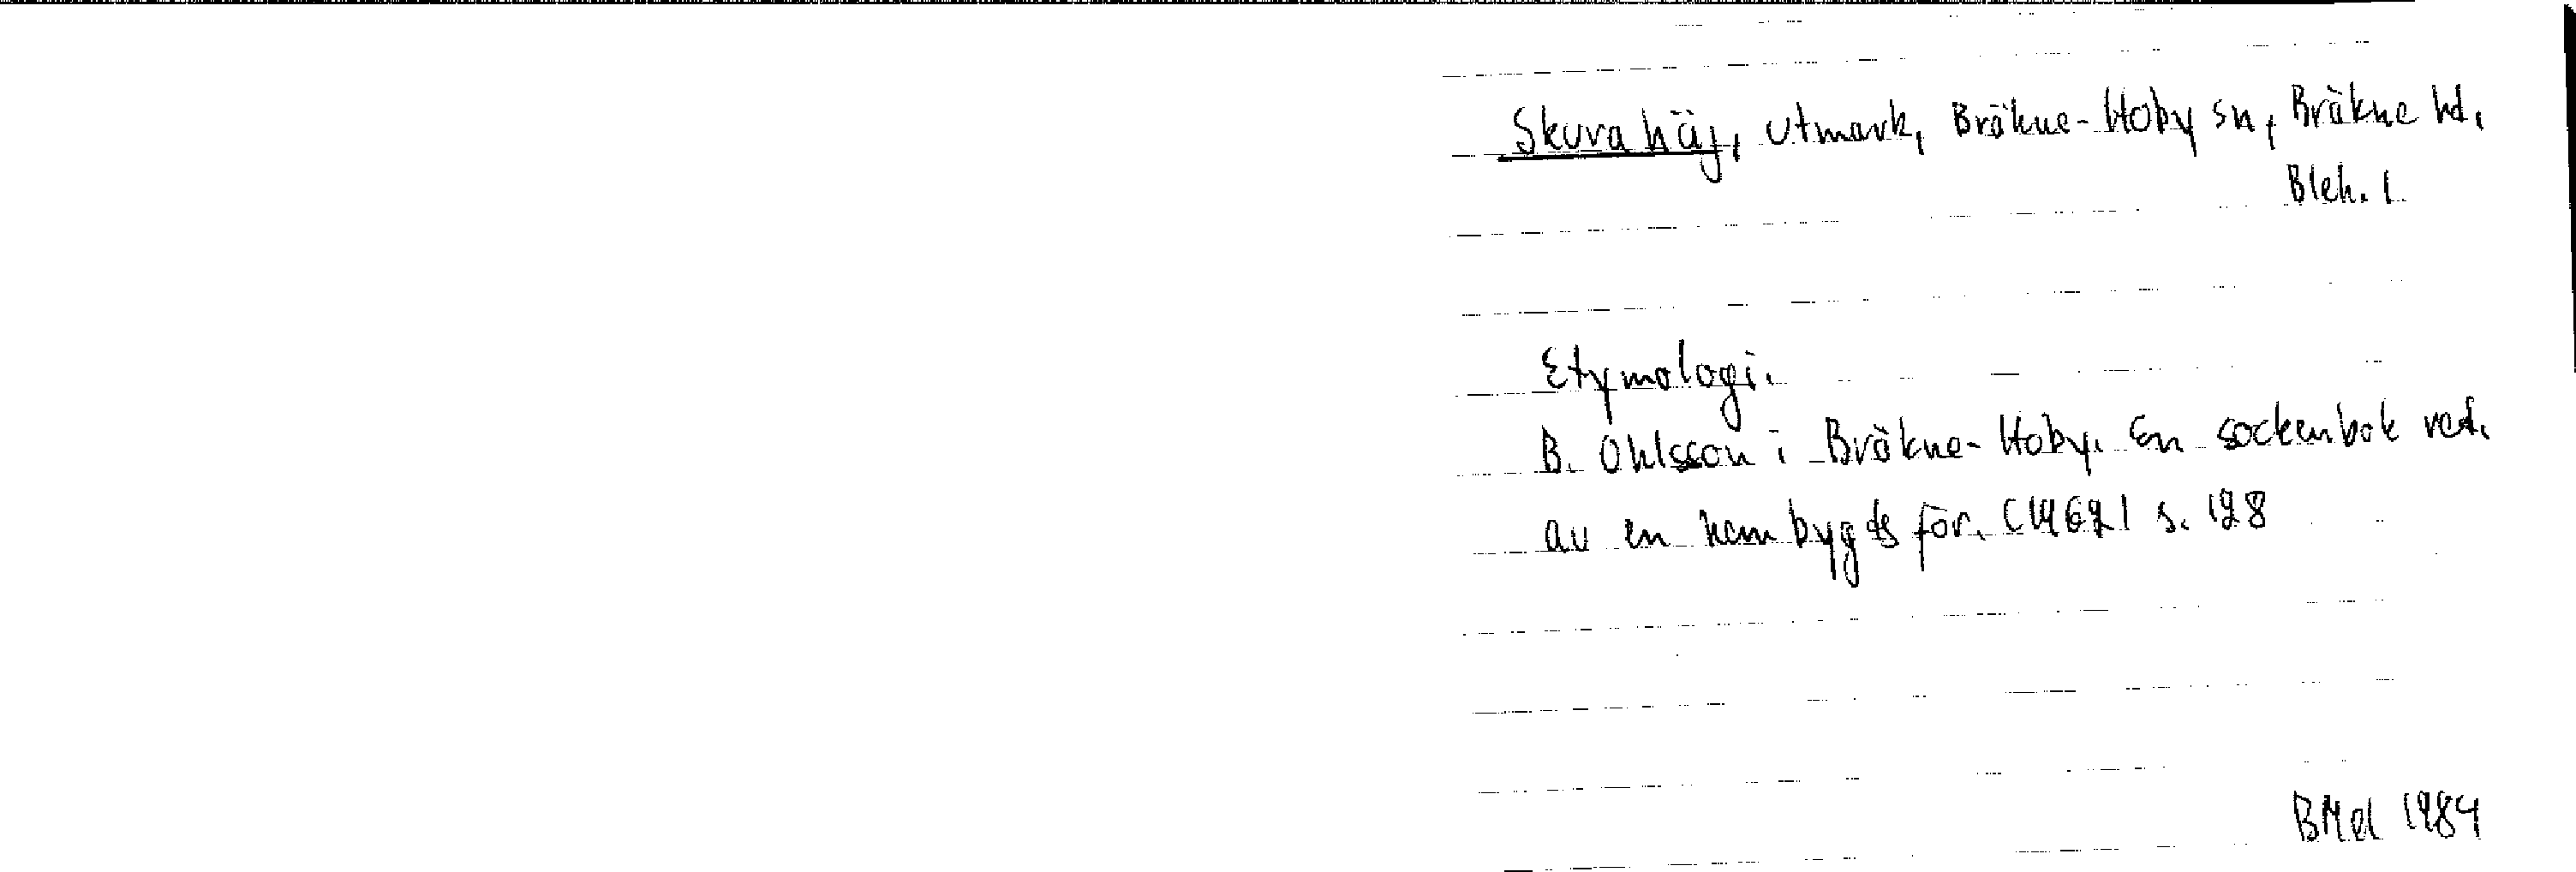 Skura häj, utmark, Bräkne-Hoby sn, Bräkne hd,
Blek. l.
Etymologi.
B. Ohlsson i Bräkne-Hoby. En sockenbok red.
av en hembygdsför. s. 128
BMd 1984